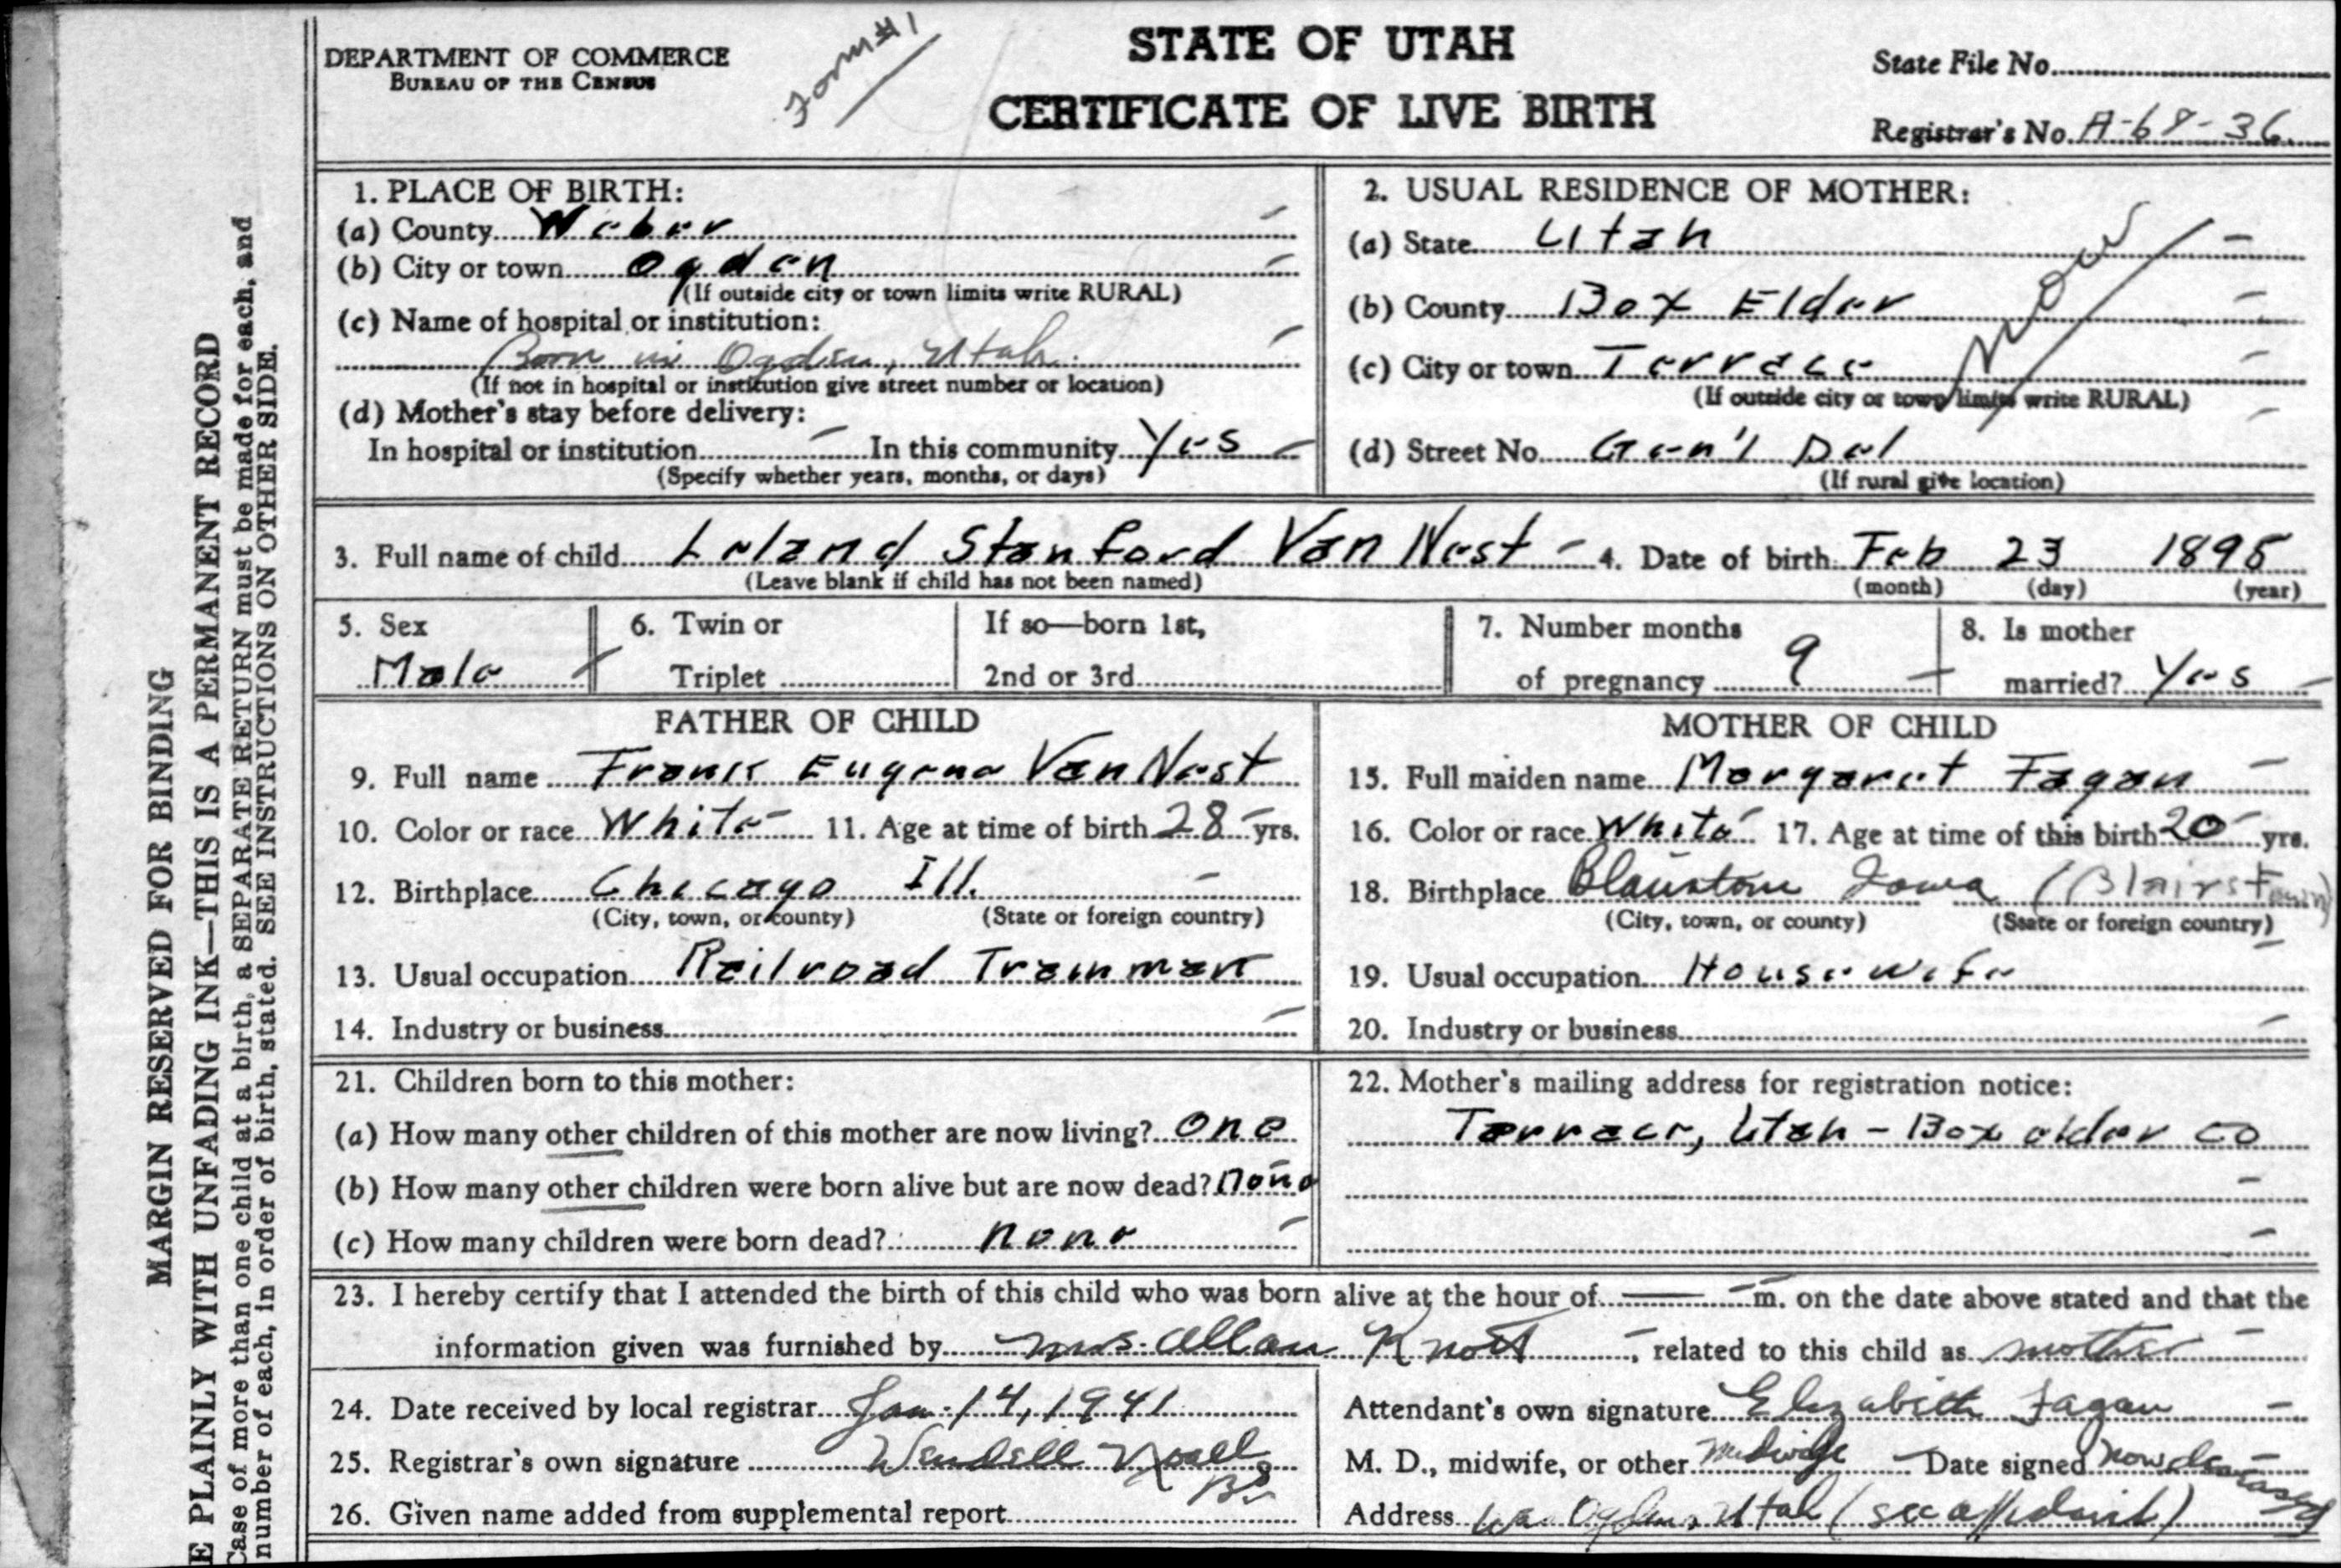 DEPARTMENT OF COMMERCE
BUREAU OF THE CENSUS
Form #1
STATE OF UTAH
CERTIFICATE OF LIVE BIRTH
State File No.
Registrar's No. A-68-36
MARGIN RESERVED FOR BINDING
E PLAINLY WITH UNFADING INK—THIS IS A PERMANENT RECORD
Case of more than one child at a birth, a SEPARATE RETURN must be made for each, and
number of each, in order of birth, stated. SEE INSTRUCTIONS ON OTHER SIDE.
1. PLACE OF BIRTH:
(a) County Weber
(b) City or town Ogden
(If outside city or town limits write RURAL)
(c) Name of hospital or institution:
Born in Ogden, Utah.
(If not in hospital or institution give street number or location)
(d) Mother's stay before delivery:
In hospital or institution In this community Yes
(Specify whether years, months, or days)
2. USUAL RESIDENCE OF MOTHER:
(a) State Utah
(b) County Box Elder
(c) City or town Terrace
(If outside city or town limits write RURAL)
(d) Street No. Gen'l Del
(If rural give location)
now
3. Full name of child Leland Stanford Van Nest
(Leave blank if child has not been named)
4. Date of birth Feb 23 1895
(month) (day) (year)
5. Sex
Male
6. Twin or
Triplet
If so—born 1st,
2nd or 3rd
7. Number months
of pregnancy 9
8. Is mother
married? Yes
FATHER OF CHILD
9. Full name Frank Eugene Van Nest
10. Color or race White 11. Age at time of birth 28 yrs.
12. Birthplace Chicago Ill.
(City, town, or county) (State or foreign country)
13. Usual occupation Railroad Trainman
14. Industry or business
MOTHER OF CHILD
15. Full maiden name Margaret Fagan
16. Color or race White 17. Age at time of this birth 20 yrs.
18. Birthplace Iowa (Blairstown)
(City, town, or county) (State or foreign country)
19. Usual occupation Housewife
20. Industry or business
21. Children born to this mother:
(a) How many other children of this mother are now living? one
(b) How many other children were born alive but are now dead? none
(c) How many children were born dead? none
22. Mother's mailing address for registration notice:
Terrace, Utah - Box elder co
23. I hereby certify that I attended the birth of this child who was born alive at the hour of m. on the date above stated and that the
information given was furnished by Mrs. Allan Knott, related to this child as mother
24. Date received by local registrar Jan. 14, 1941
25. Registrar's own signature Wendell
26. Given name added from supplemental report
Attendant's own signature Elizabeth Fagan
M. D., midwife, or other Midwife Date signed Now deceased
Address Ogden, Utah (see affidavit)